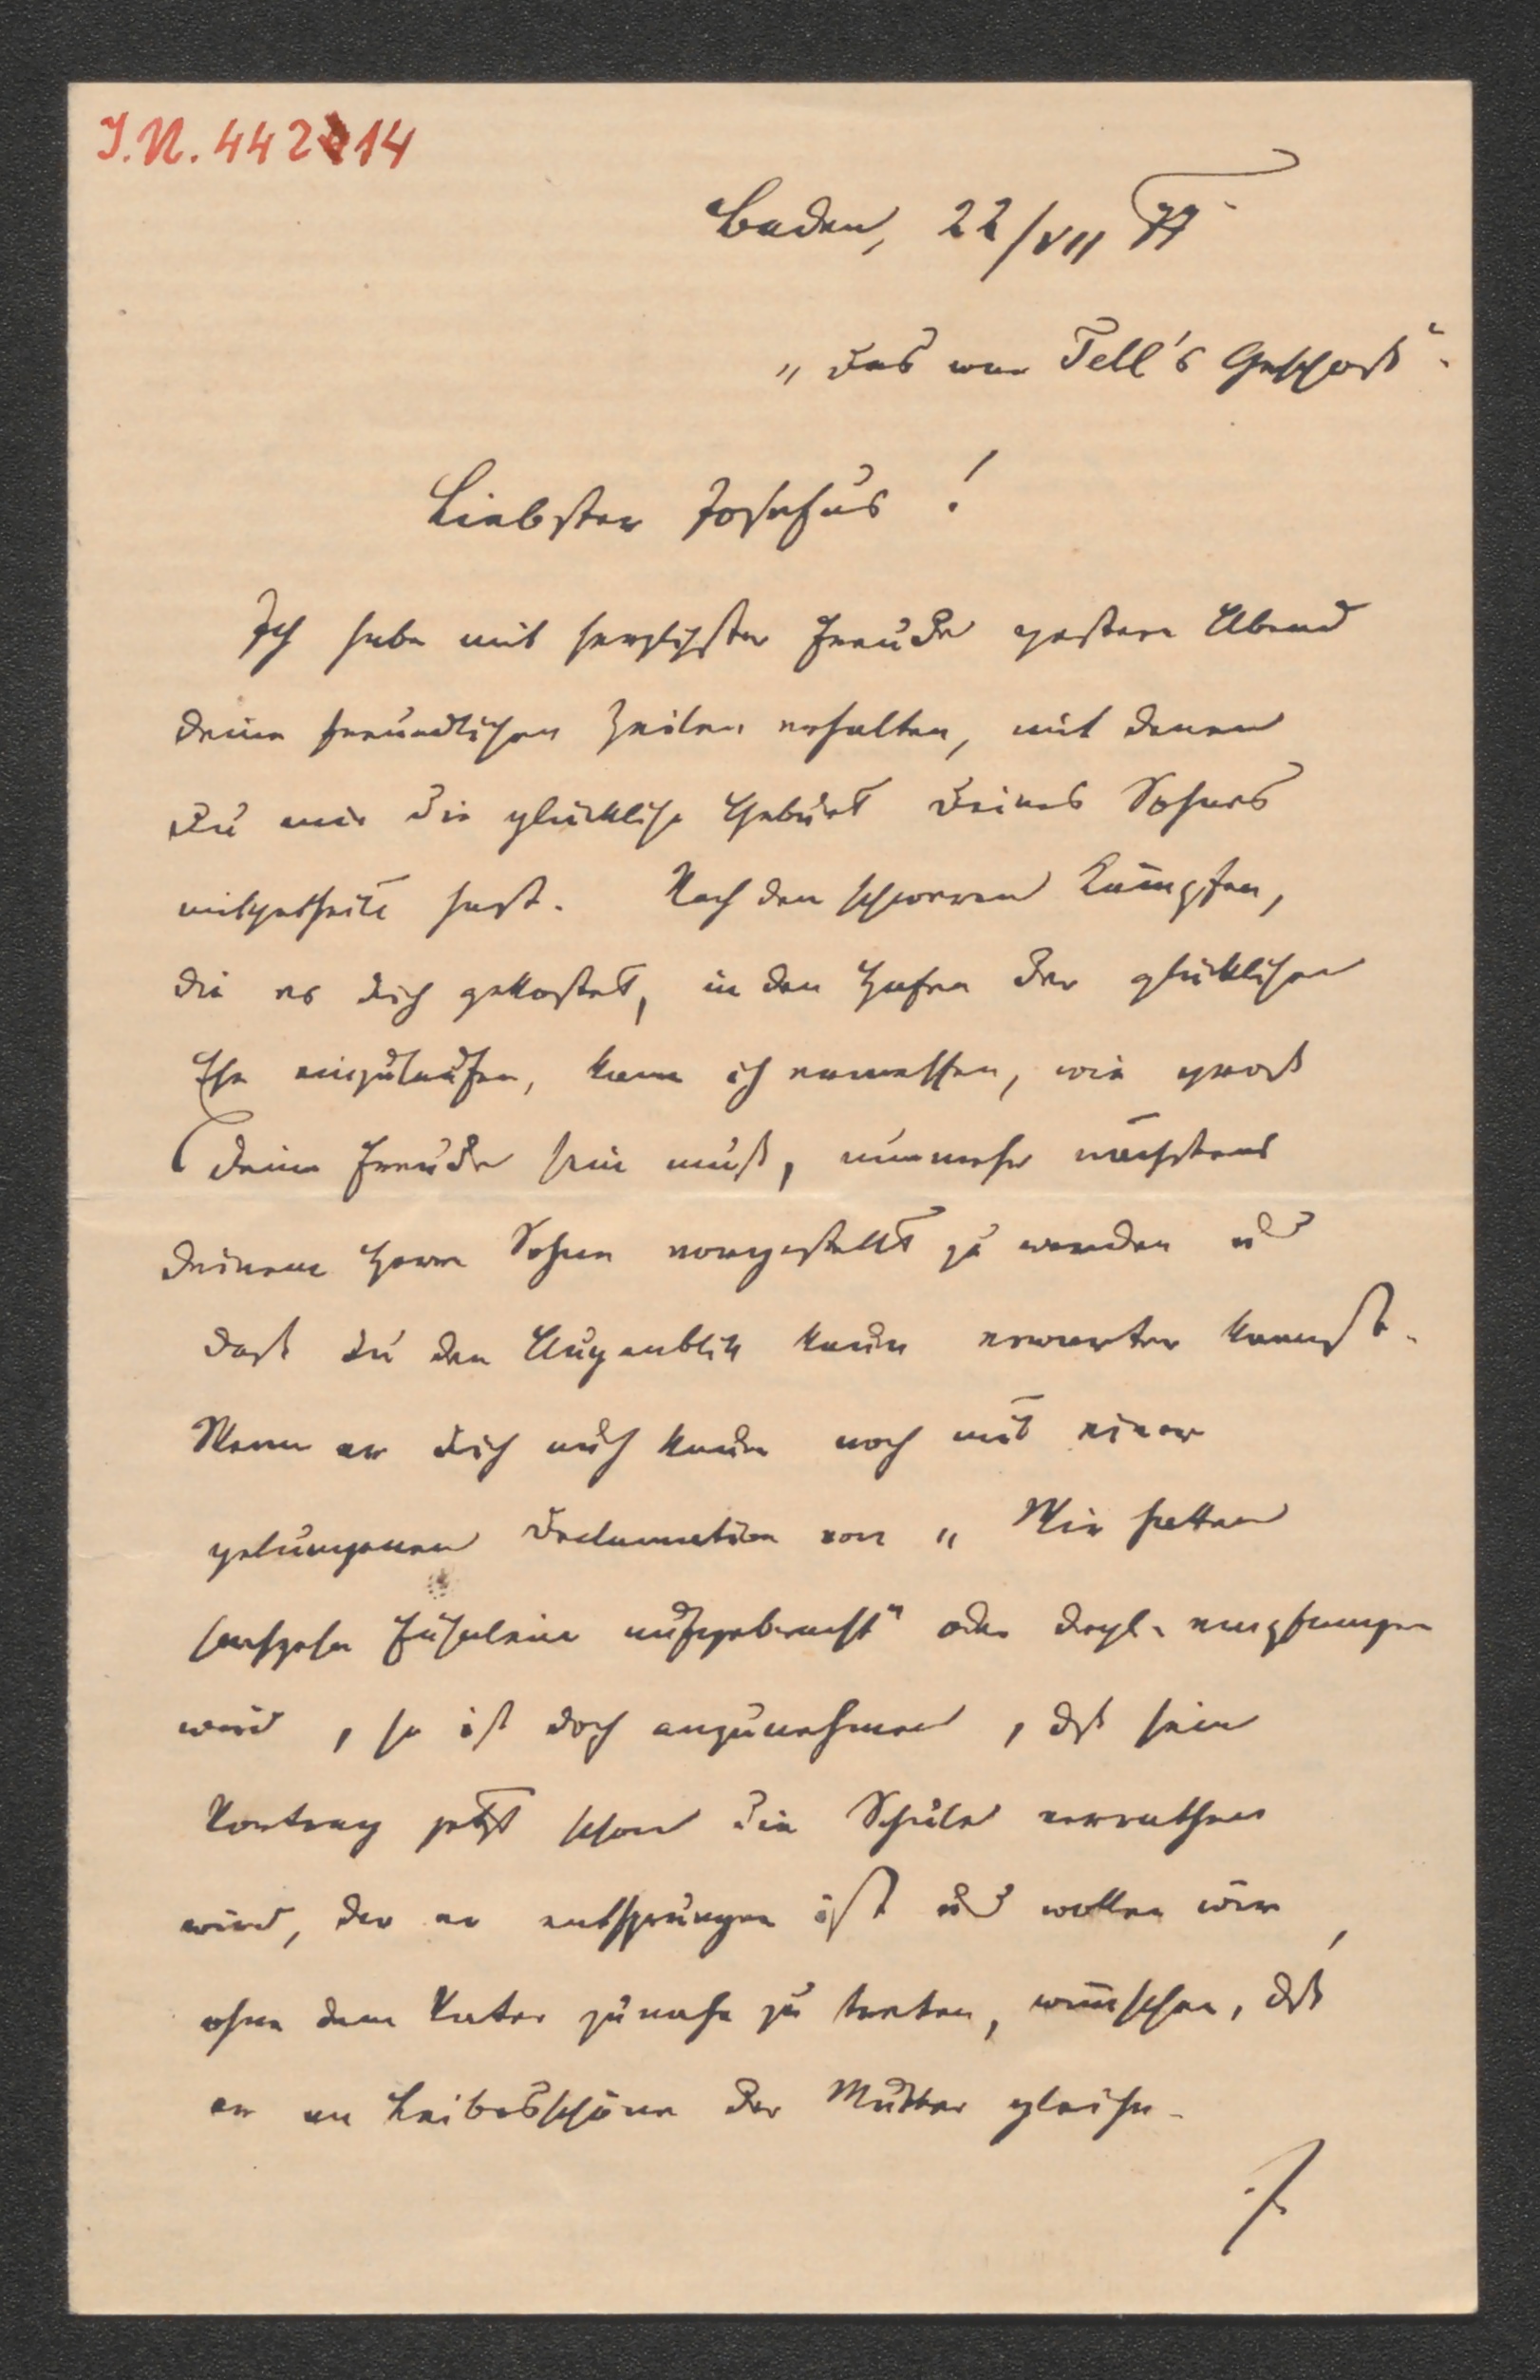 I.N. 442214
Baden, 22/VII 77
„Das war Tell's Geschoß“.
Liebster Josefus!
Ich habe mit herzlichster Freude gestern Abend
Deine freundlichen Zeilen erhalten, mit denen
Du mir die glückliche Geburt Deines Sohnes
mitgetheilt hast. Nach den schweren Kämpfen,
die es Dich gekostet, in den Hafen der glücklichen
Ehe einzulaufen, kann ich ermessen, wie groß
Deine Freude sein muß, nunmehr nächstens
Deinem Herrn Sohne vorgestellt zu werden und
daß Du den Augenblick kaum erwarten kannst.
Wenn er Dich auch kaum noch mit einer
gelungenen Declamation von „Wir hatten
sechzehn Fähnlein aufgebracht“ oder dergl. empfangen
wird, so ist doch anzunehmen, dß sein
Vortrag jetzt schon die Schule verrathen
wird, der er entsprungen ist und wollen wir,
ohne dem Vater zunahe zu treten, wünschen, dß
er an Leibesschöne der Mutter gleiche.